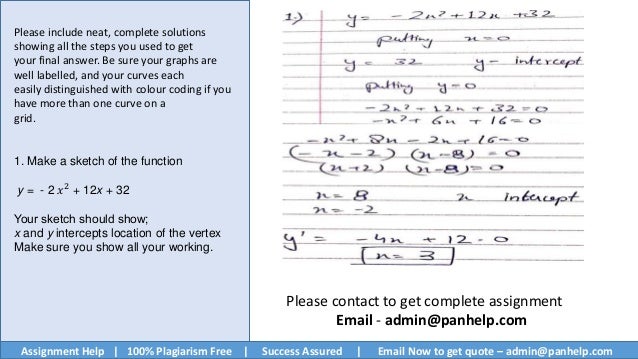 Please include neat, complete solutions
showing all the steps you used to get
your final answer. Be sure your graphs are
well labelled, and your curves each
easily distinguished with colour coding if you
have more than one curve on a
grid.
1. Make a sketch of the function
y = - 2 𝑥² + 12x + 32
Your sketch should show;
x and y intercepts location of the vertex
Make sure you show all your working.
1.) y = - 2x² + 12x + 32
putting x = 0
y = 32 y - intercept
putting y = 0
-2x² + 12x + 32 = 0
-x² + 6x + 16 = 0
-x² + 8x - 2x + 16 = 0
(-x-2) (x-8) = 0
(x+2) (x-8) = 0
x = 8 x intercept
x = -2
y' = -4x + 12 = 0
x = 3
Please contact to get complete assignment
Email - admin@panhelp.com
Assignment Help | 100% Plagiarism Free | Success Assured | Email Now to get quote – admin@panhelp.com